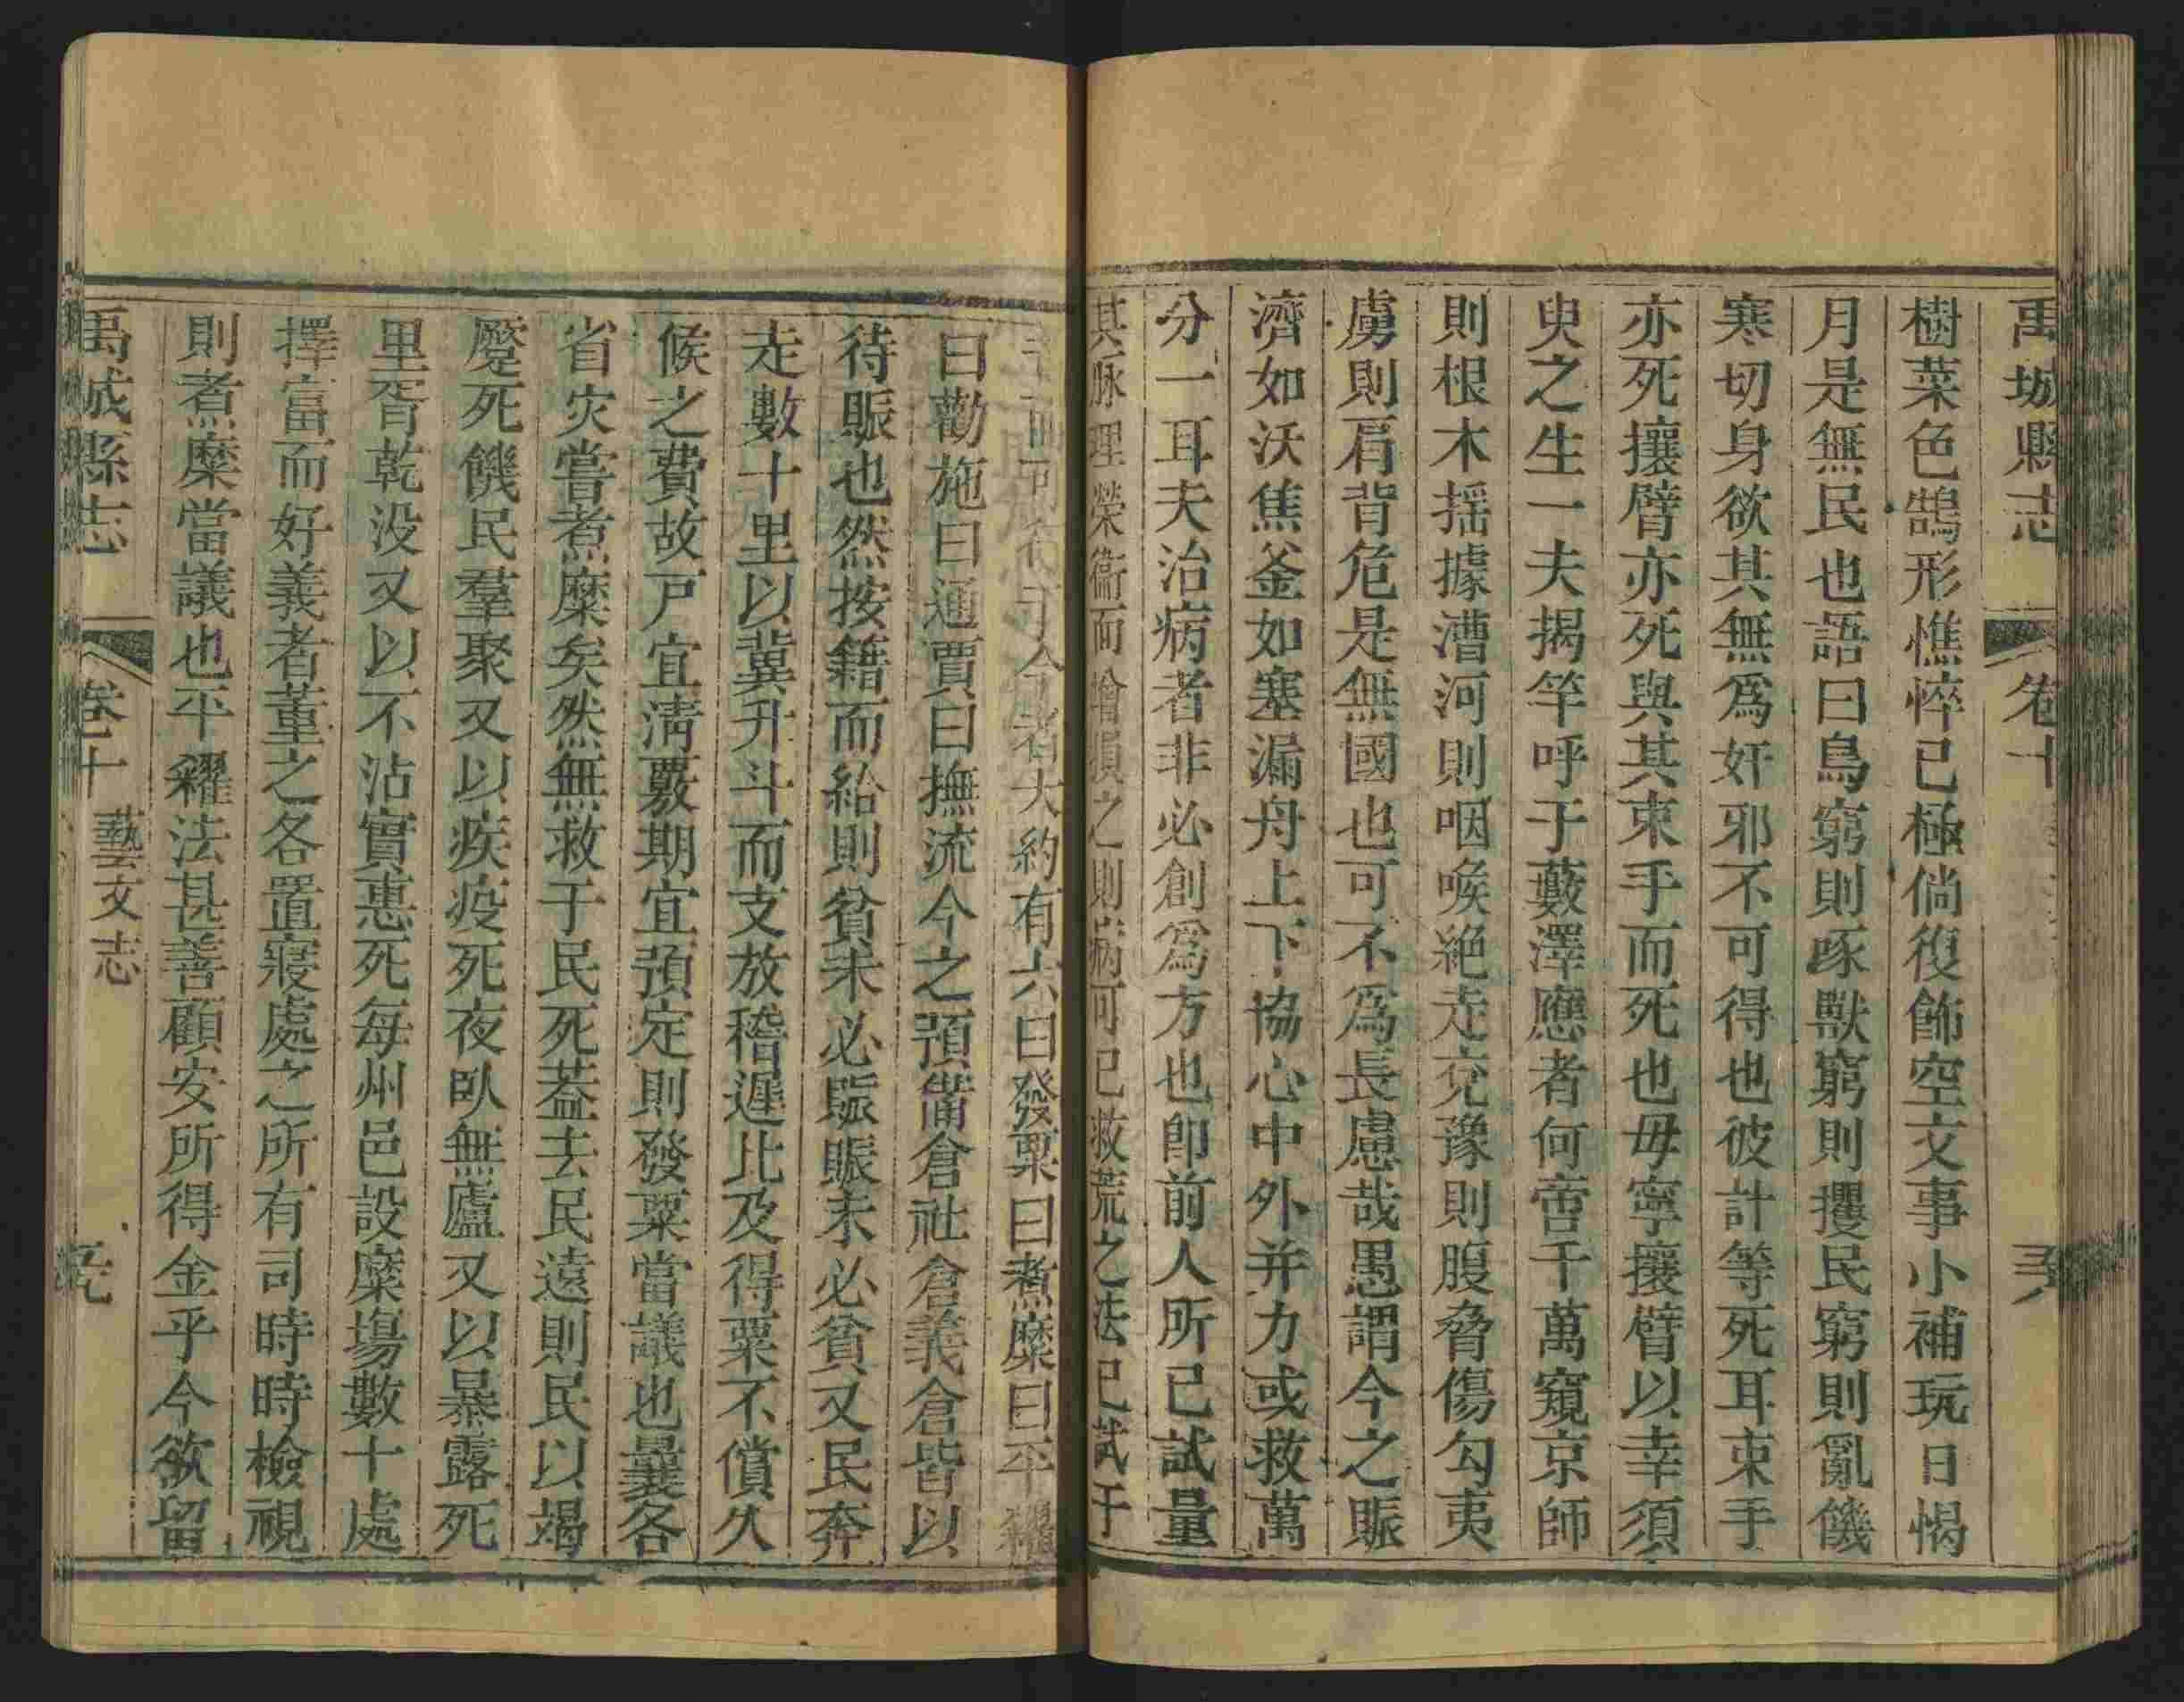 禹城縣志 卷十
樹菜色鵠形憔悴已極倘復飾空文事小補玩日愒
月是無民也語曰鳥窮則啄獸窮則攫民窮則亂饑
寒切身欲其無爲奸邪不可得也彼計等死耳束手
亦死攘臂亦死與其束手而死也毋寧攘臂以幸須
臾之生一夫揭竿呼于藪澤應者何啻千萬窺京師
則根木揺據漕河則咽喉絶走兖豫則腹脅傷勾夷
虜則肩背危是無國也可不爲長慮哉愚謂今之賑
濟如沃焦釜如塞漏舟上下協心中外并力或救萬
分一耳夫治病者非必創爲方也卽前人所已試量
其脉理榮衞而損之則病可已救荒之法已試于
今者大約有六曰發粟曰煮糜曰平糴
曰勸施曰通賈曰撫流今之預備倉社倉義倉皆以
待賑也然按籍而給則貧未必賑賑未必貧又民奔
走數十里以冀升斗而支放稽遲比及得粟不償久
候之費故戸宜淸覈期宜預定則發粟當議也曩各
省灾嘗煮糜矣然無救于民死葢去民遠則民以竭
蹷死饑民羣聚又以疾疫死夜臥無廬又以暴露死
里胥乾没又以不沾實惠死每州邑設糜塲數十處
擇富而好義者董之各置寢處之所有司時時檢視
則煮糜當議也平糴法甚善顧安所得金乎今欲留
禹城縣志 卷十 藝文志